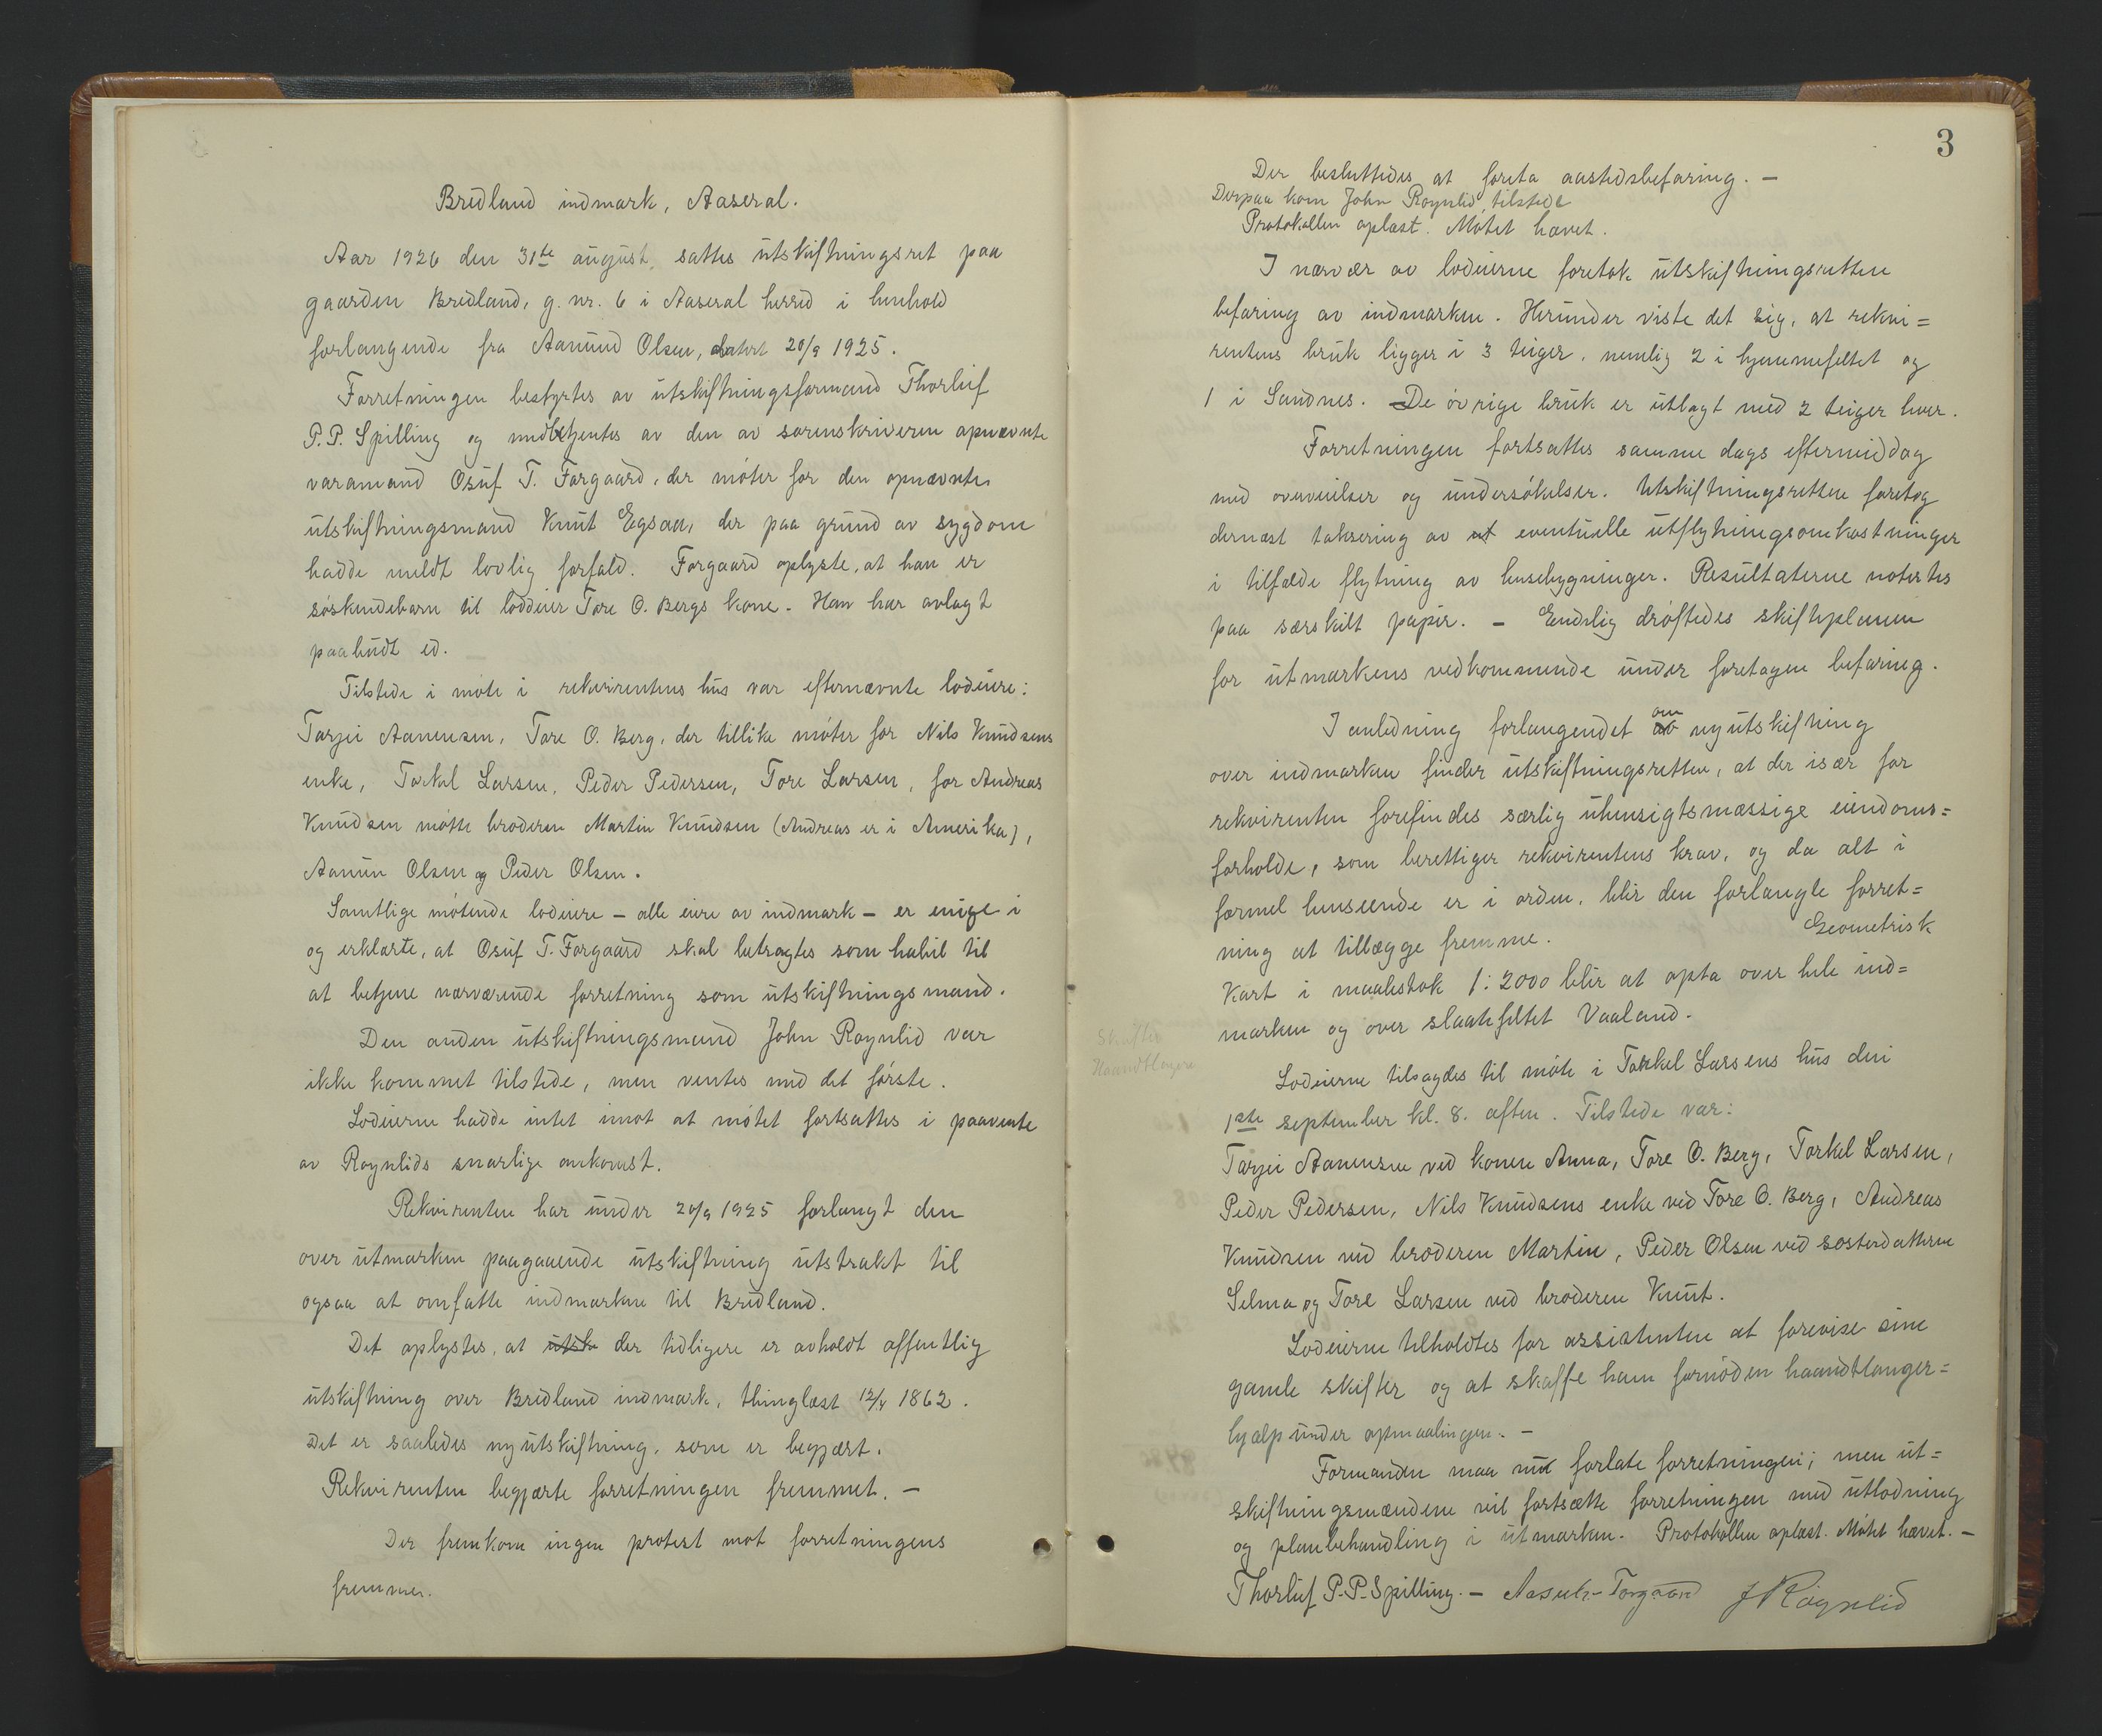 Bredland indmark, Aaseral.
Aar 1926 den 31te august, sattes utskiftningsret paa
gaarden Bredland, g. nr. 6 i Aaseral herred i henhold
forlangende fra Aanund Olsen, datert 20/9 1925.
Forretningen bestyrtes av utskiftningsformand Thorleif
P.P. Spilling og medbetjentes av den av sorenskriveren opnævnte
varamand Osuf T. Forgaard, der møter for den opnævnte
utskiftningsmand Knut Egsaa, der paa grund av sygdom
hadde meldt lovlig forfald. Forgaard oplyste, at han er
søskendebarn til loddeier Tore O. Bergs kone. Han har avlagt
paabudt ed.
Tilstede i møte i rekvirentens hus var efternævnte lodeiere:
Tarjei Aanensen, Tore O. Berg, der tillike møter for Nils Knudsens
enke, Torkel Larsen, Peder Pedersen, Tore Larsen, for Andreas
Knudsen møtte broderen Martin Knudsen (Andreas er i Amerika),
Aanun Olsen og Peder Olsen.
Samtlige møtende lodeiere – alle eiere av indmark – er enige i
og erklærte, at Osuf T. Forgaard skal betragtes som habil til
at betjene nærværende forretning som utskiftningsmand.
Den anden utskiftningsmand John Røynlid var
ikke kommet tilstede, men ventes med det første.
Lodeierne hadde intet imot at møtet fortsattes i paavente
av Røynlids snarlige ankomst.
Rekvirenten har under 20/9 1925 forlangt den
over utmarken paagaaende utskiftning utstrakt til
ogsaa at omfatte indmarken til Bredland.
Det oplystes, at utsk der tidligere er avholdt offentlig
utskiftning over Bredland indmark, thinglæst 12/4 1862.
Det er saaledes nyutskiftning, som er begjært.
Rekvirenten begjærte forretningen fremmet. –
Der fremkom ingen protest mot forretningens
fremme.
3
Der besluttedes at foreta aastedsbefaring. –
Derpaa kom John Røynlid tilstede
Protokollen oplæst. Møtet hævet.
I nærvær av lodeierne foretok utskiftningsretten
befaring av indmarken. Herunder viste det sig, at rekvi=
rentens bruk ligger i 3 teiger, nemlig 2 i hjemmefeltet og
1 i Sandnes. De øvrige bruk er utlagt med 2 teiger hver.
Forretningen fortsattes samme dags eftermiddag
med overveielser og undersøkelser. Utskiftningsretten foretog
dernæst taksering av ut eventuelle utflytningsomkostninger
i tilfælde flytning av husebygninger. Resultaterne notertes
paa særskilt papir. – Endelig drøftedes skifteplanen
for utmarkens vedkommende under foretagen befaring.
I anledning forlangendet av om nyutskiftning
over indmarken finder utskiftningsretten, at der især for
rekvirenten forefindes særlig uhensigtsmæssige eiendoms=
forholde, som berettiger rekvirentens krav, og da alt i
formel henseende er i orden, blir den forlangte forret=
ning at tillægge fremme. Geometrisk
Kart i maalestok 1:2000 blir at opta over hele ind=
marken og over slaattefeltet Vaaland.
Skifter
Haandtlangere
Lodeierne tilsagdes til møte i Torkel Larsens hus den
1ste september kl. 8. aften. Tilstede var:
Tarjei Aanensen ved konen Anna, Tore O. Berg, Torkel Larsen,
Peder Pedersen, Nils Knudsens enke ved Tore O. Berg, Andreas
Knudsen ved broderen Martin, Peder Olsen ved søsterdatteren
Selma og Tore Larsen ved broderen Knut.
Lodeierne tilholdtes for assistenten at forevise sine
gamle skifter og at skaffe ham fornøden haandtlanger=
hjælp under opmaalingen. –
Formanden maa nu forlate forretningen; men ut=
skiftningsmændene vil fortsætte forretningen med utlodning
og planbehandling i utmarken. Protokollen oplæst. Møtet hævet. –
Thorleif P.P. Spilling. – Aasulv Forgaard J Røynlid